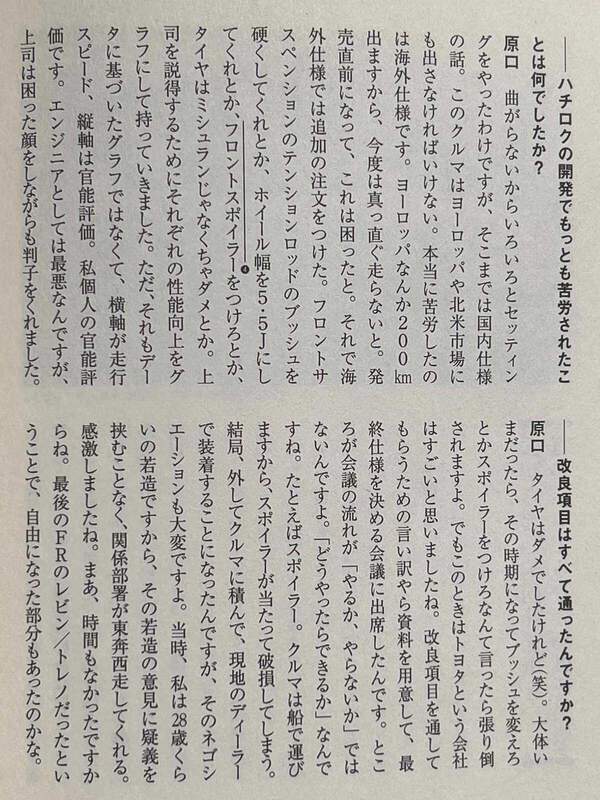 ―― ハチロクの開発でもっとも苦労されたこ
とは何でしたか？
原口　曲がらないからいろいろとセッティン
グをやったわけですが、そこまでは国内仕様
の話。このクルマはヨーロッパや北米市場に
も出さなければいけない。本当に苦労したの
は海外仕様です。ヨーロッパなんか200km
出ますから、今度は真っ直ぐ走らないと。発
売直前になって、これは困ったと。それで海
外仕様では追加の注文をつけた。フロントサ
スペンションのテンションロッドのブッシュを
硬くしてくれとか、ホイール幅を5・5Jにし
てくれとか、フロントスポイラーをつけろとか、
4
タイヤはミシュランじゃなくちゃダメとか。上
司を説得するためにそれぞれの性能向上をグ
ラフにして持っていきました。ただ、それもデー
タに基づいたグラフではなくて、横軸が走行
スピード、縦軸は官能評価。私個人の官能評
価です。エンジニアとしては最悪なんですが、
上司は困った顔をしながらも判子をくれました。
―― 改良項目はすべて通ったんですか？
原口　タイヤはダメでしたけれど（笑）。大体い
まだったら、その時期になってブッシュを変えろ
とかスポイラーをつけろなんて言ったら張り倒
されますよ。でもこのときはトヨタという会社
はすごいと思いましたね。改良項目を通して
もらうための言い訳やら資料を用意して、最
終仕様を決める会議に出席したんです。とこ
ろが会議の流れが「やるか、やらないか」では
ないんですよ。「どうやったらできるか」なんで
すね。たとえばスポイラー。クルマは船で運び
ますから、スポイラーが当たって破損してしまう。
結局、外してクルマに積んで、現地のディーラー
で装着することになったんですが、そのネゴシ
エーションも大変ですよ。当時、私は28歳くら
いの若造ですから、その若造の意見に疑義を
挟むことなく、関係部署が東奔西走してくれる。
感激しましたね。まあ、時間もなかったですか
らね。最後のFRのレビン/トレノだったとい
うことで、自由になった部分もあったのかな。